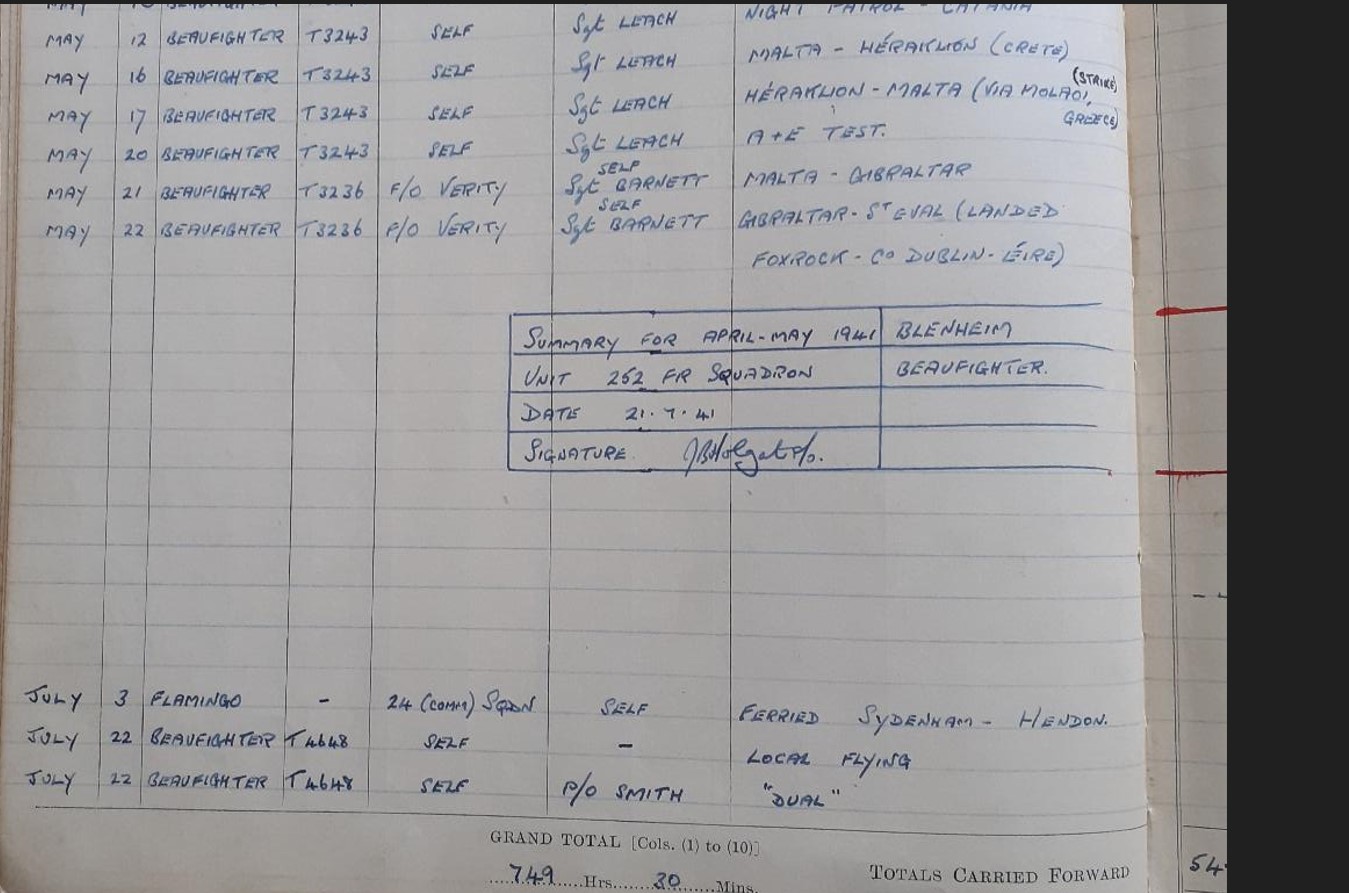 MAY BEAUFIGHTER NIGHT PATROL - CATANIA
MAY 12 BEAUFIGHTER T3243 SELF Sgt LEACH MALTA - HÉRAKLION (CRETE)
MAY 16 BEAUFIGHTER T3243 SELF Sgt LEACH HÉRAKLION - MALTA (VIA MOLAOI, (STRIKE) GREECE)
MAY 17 BEAUFIGHTER T3243 SELF Sgt LEACH A+E TEST.
MAY 20 BEAUFIGHTER T3243 SELF Sgt LEACH
SELF
MAY 21 BEAUFIGHTER T3236 F/O VERITY Sgt BARNETT MALTA - GIBRALTAR
SELF
MAY 22 BEAUFIGHTER T3236 F/O VERITY Sgt BARNETT GIBRALTAR - ST EVAL (LANDED
FOXROCK - CO DUBLIN - ÉIRE)
SUMMARY FOR APRIL-MAY 1941 BLENHEIM
UNIT 252 FR SQUADRON BEAUFIGHTER.
DATE 21.7.41
SIGNATURE JBHolgate P/O.
JULY 3 FLAMINGO - 24 (COMM) SQDN SELF FERRIED SYDENHAM - HENDON.
JULY 22 BEAUFIGHTER T4648 SELF - LOCAL FLYING
JULY 22 BEAUFIGHTER T4648 SELF P/O SMITH "DUAL"
GRAND TOTAL [Cols. (1) to (10)]
749 Hrs. 30 Mins.
TOTALS CARRIED FORWARD